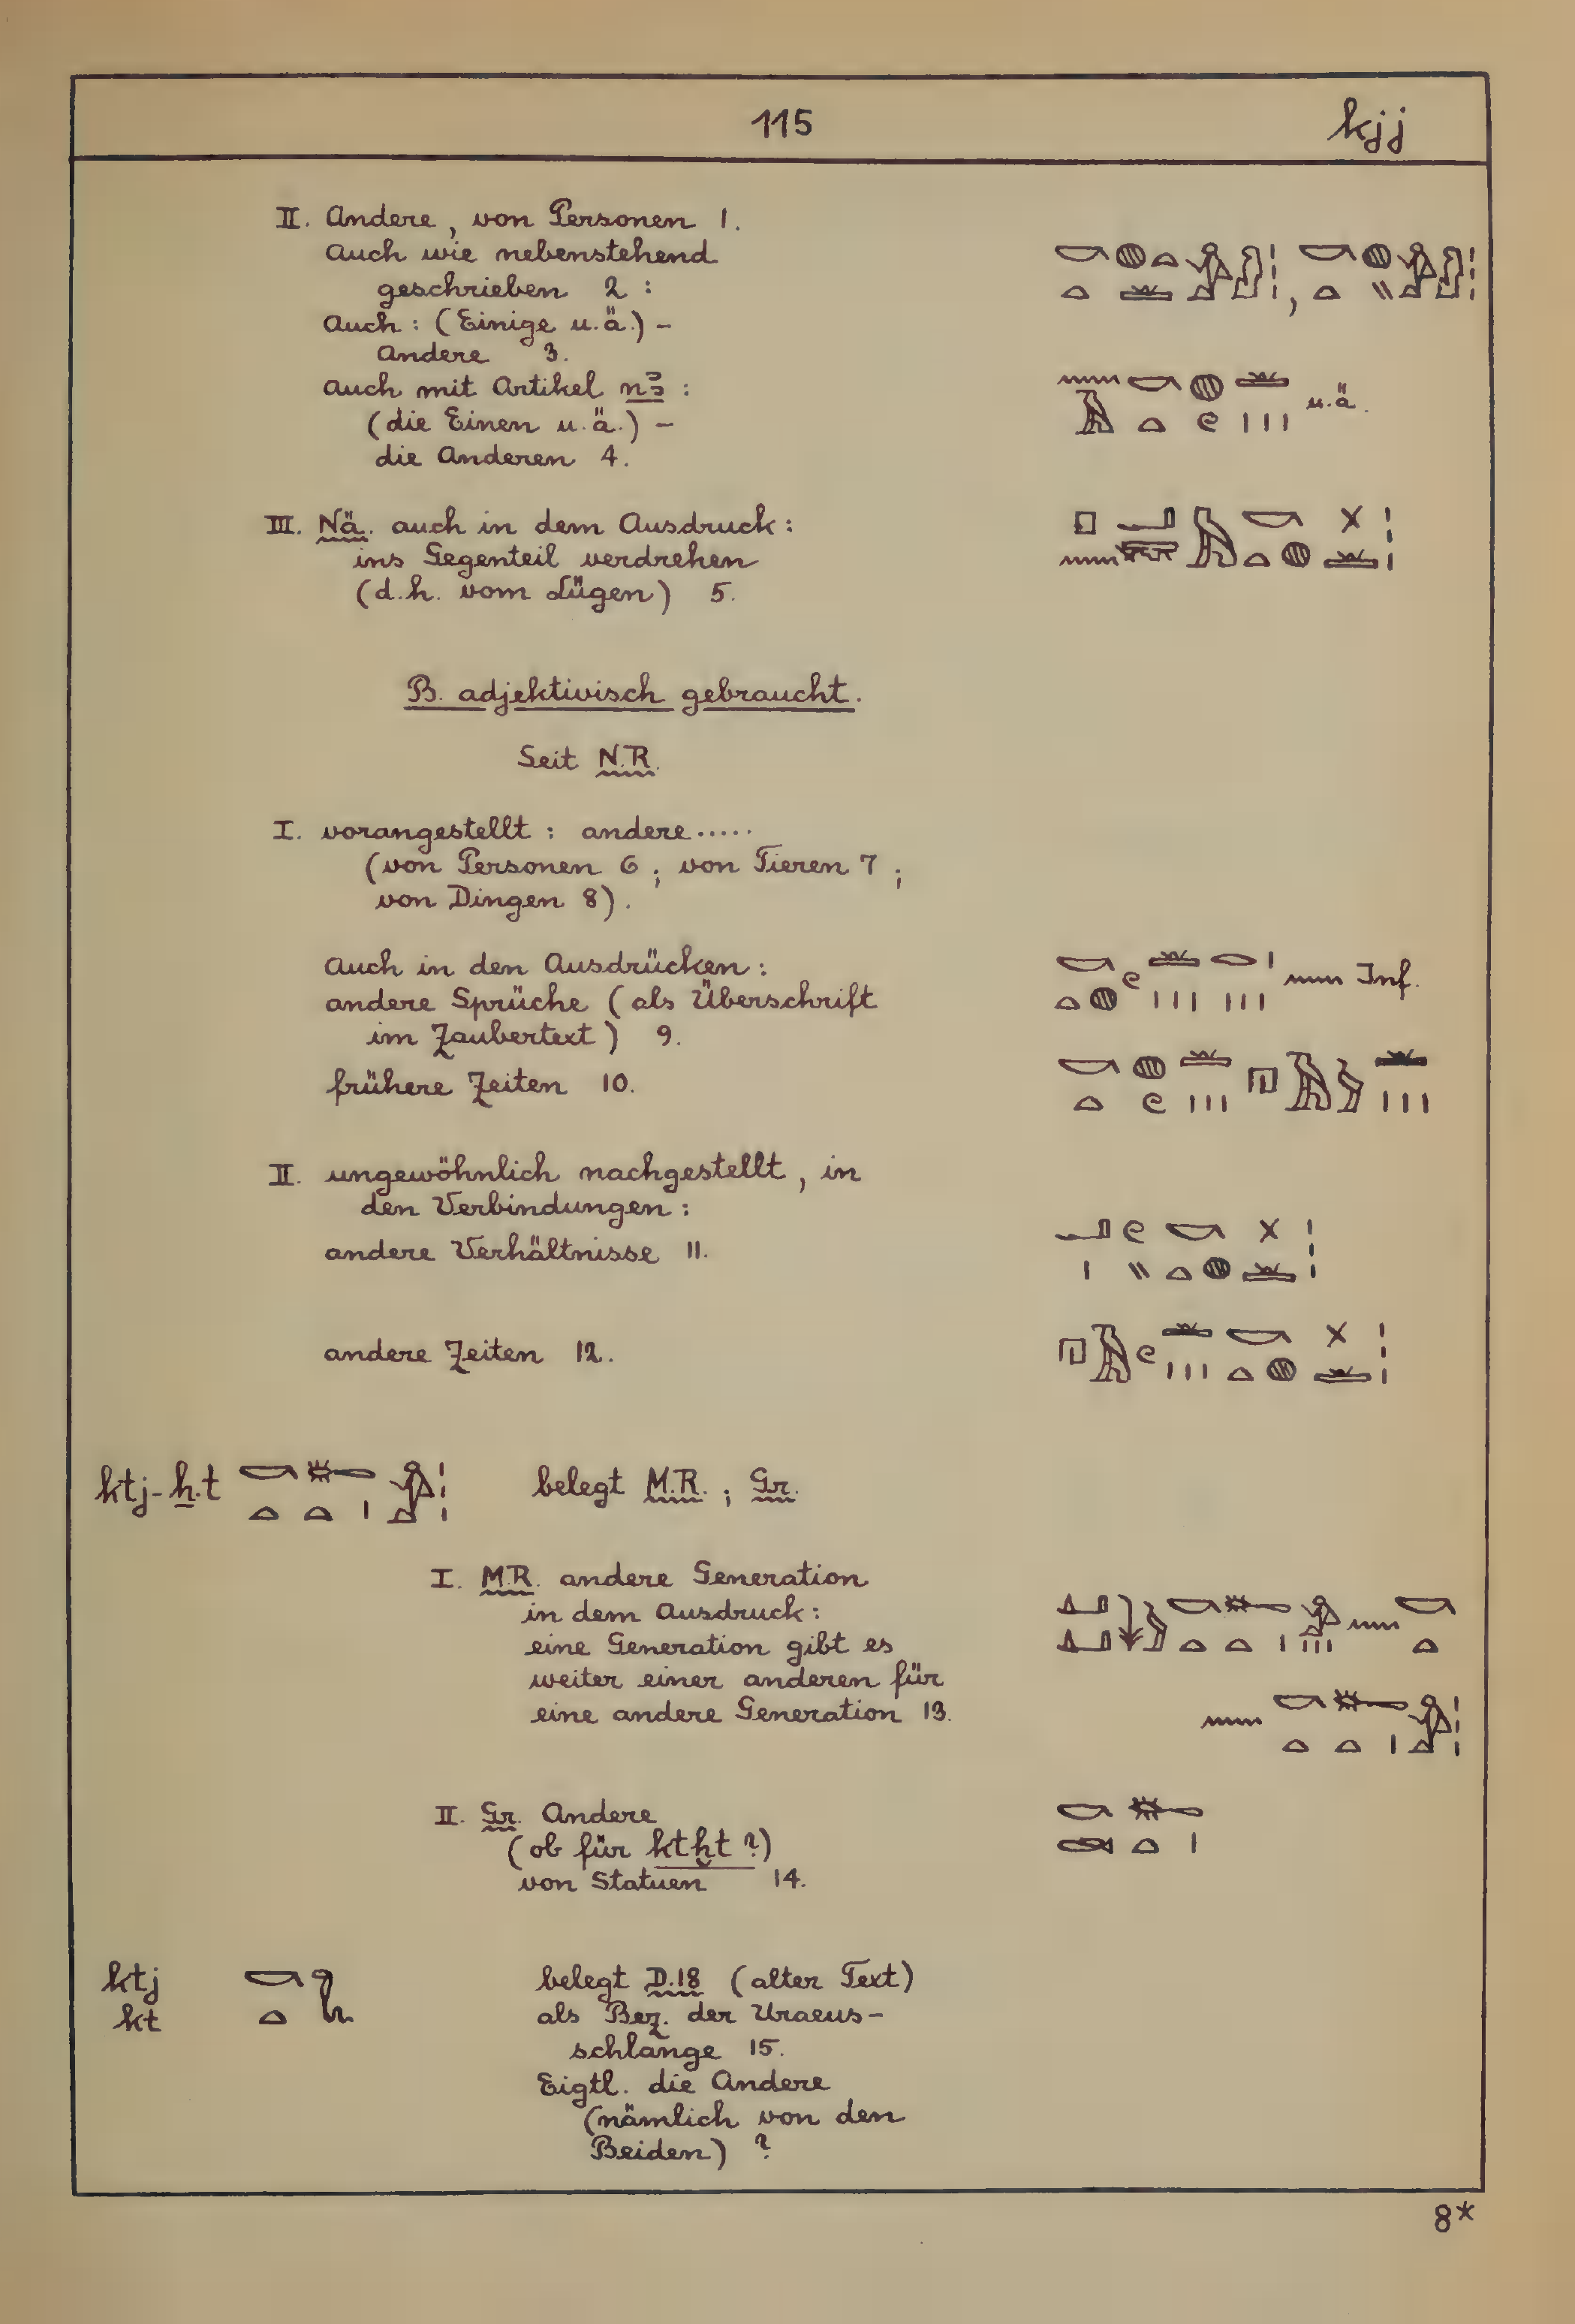 115
kjj
II. Andere, von Personen 1.
Auch wie nebenstehend
geschrieben 2 :
Auch : (Einige u.ä.) –
Andere 3.
auch mit Artikel nꜣ :
(die Einen u.ä.) –
die Anderen 4.
u.ä.
III. Nä. auch in dem Ausdruck :
ins Gegenteil verdrehen
(d.h. vom Lügen) 5.
B. adjektivisch gebraucht.
Seit N.R.
I. vorangestellt : andere .....
(von Personen 6 ; von Tieren 7 ;
von Dingen 8).
Auch in den Ausdrücken :
andere Sprüche (als Überschrift
im Zaubertext) 9.
Inf.
frühere Zeiten 10.
II. ungewöhnlich nachgestellt, in
den Verbindungen :
andere Verhältnisse 11.
andere Zeiten 12.
ktj-ẖ.t belegt M.R. ; Gr.
I. M.R. andere Generation
in dem Ausdruck :
eine Generation gibt es
weiter einer anderen für
eine andere Generation 13.
II. Gr. Andere
(ob für ktḫt ?)
von Statuen 14.
ktj belegt D.18 (alter Text)
kt als Bez. der Uraeus-
schlange 15.
Eigtl. die Andere
(nämlich von den
Beiden) ?
8*